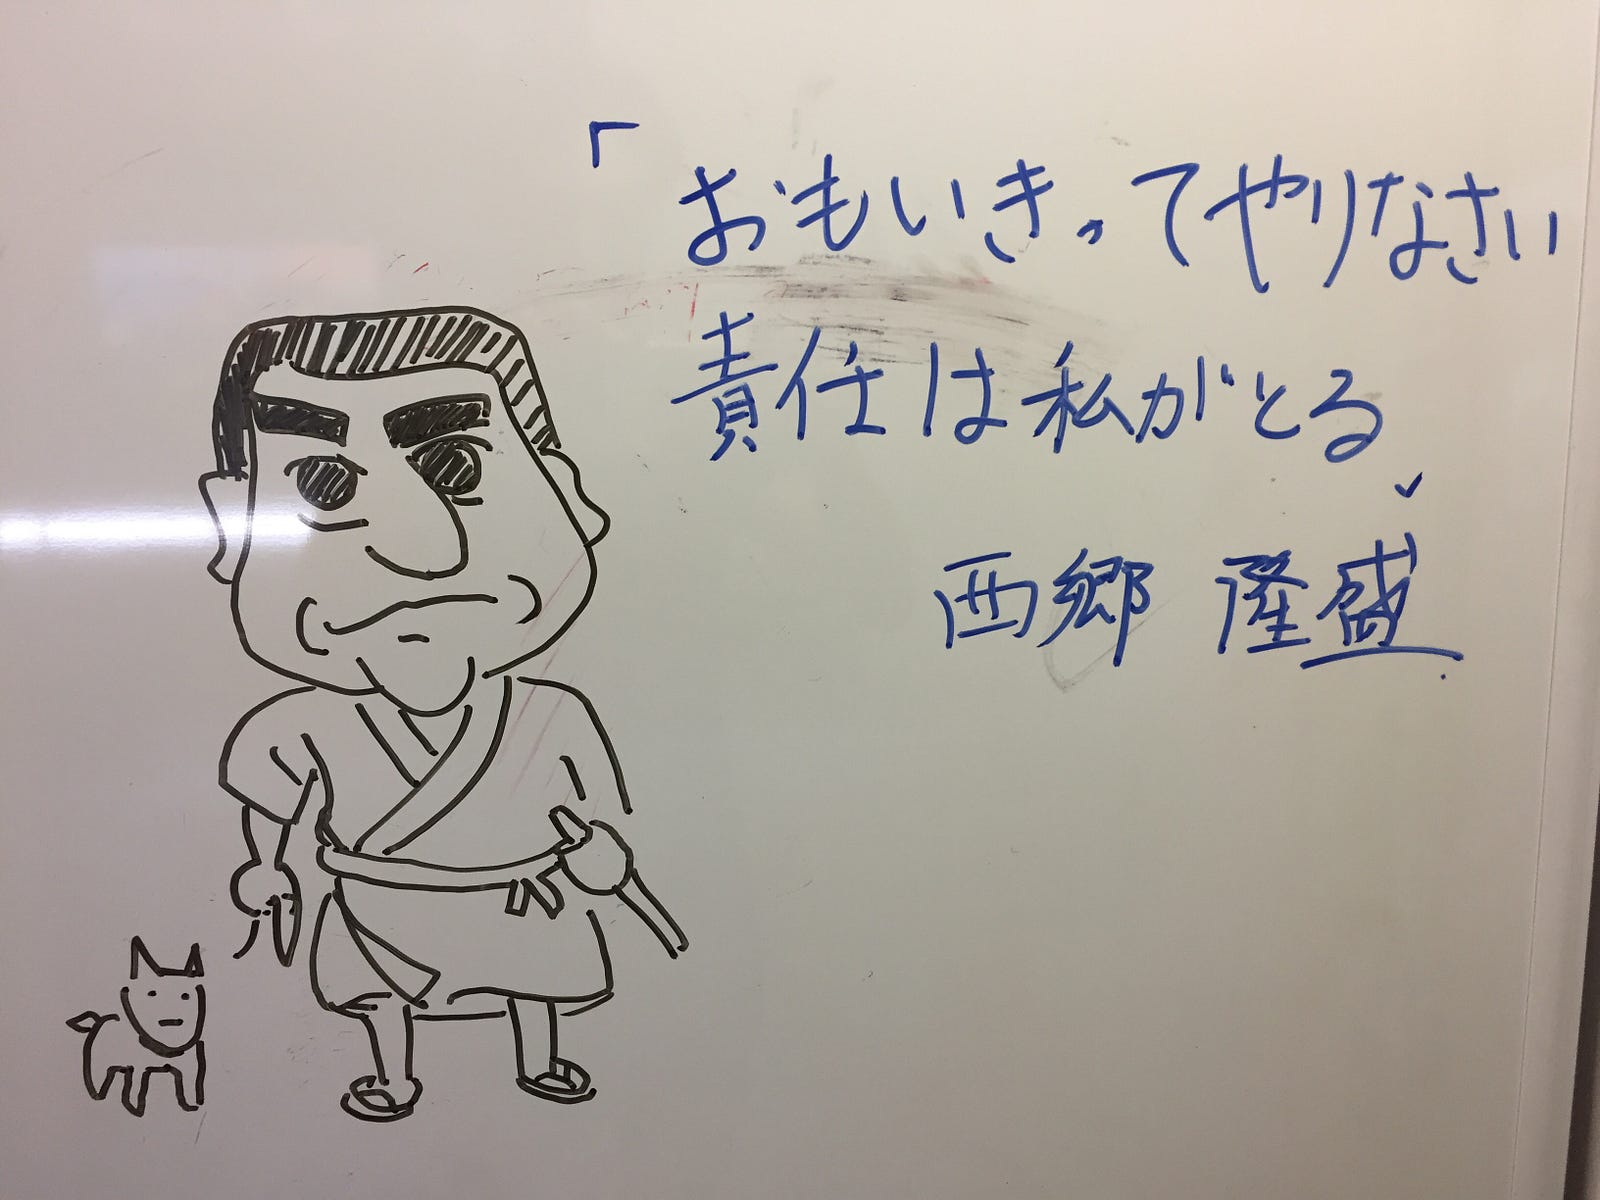 「おもいきってやりなさい
責任は私がとる」
西郷 隆盛